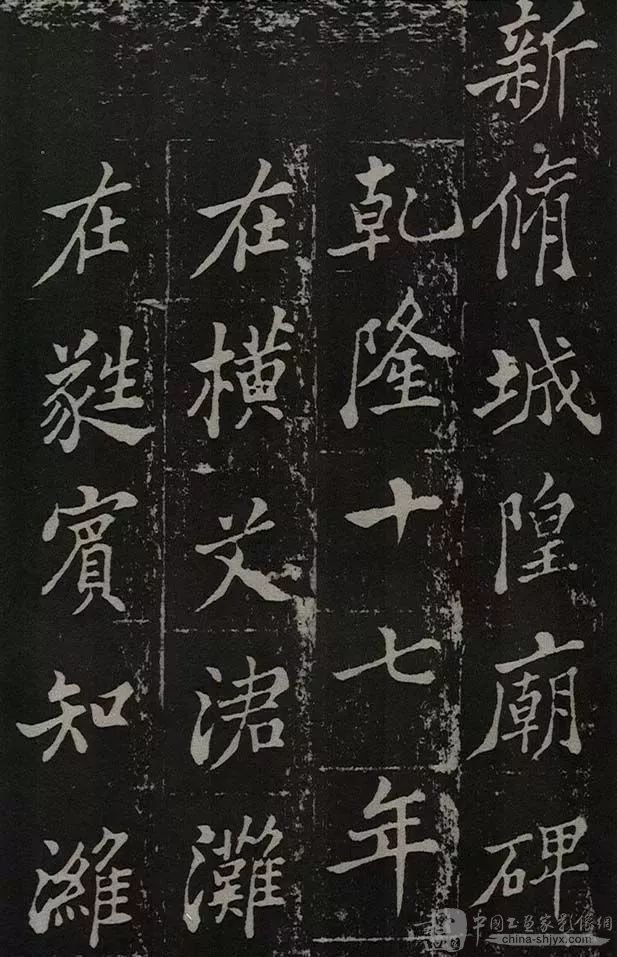 新脩城隍廟碑
乾隆十七年
在橫艾涒灘
在蕤賓知濰
中国书画家影像網
china-shjyx.com